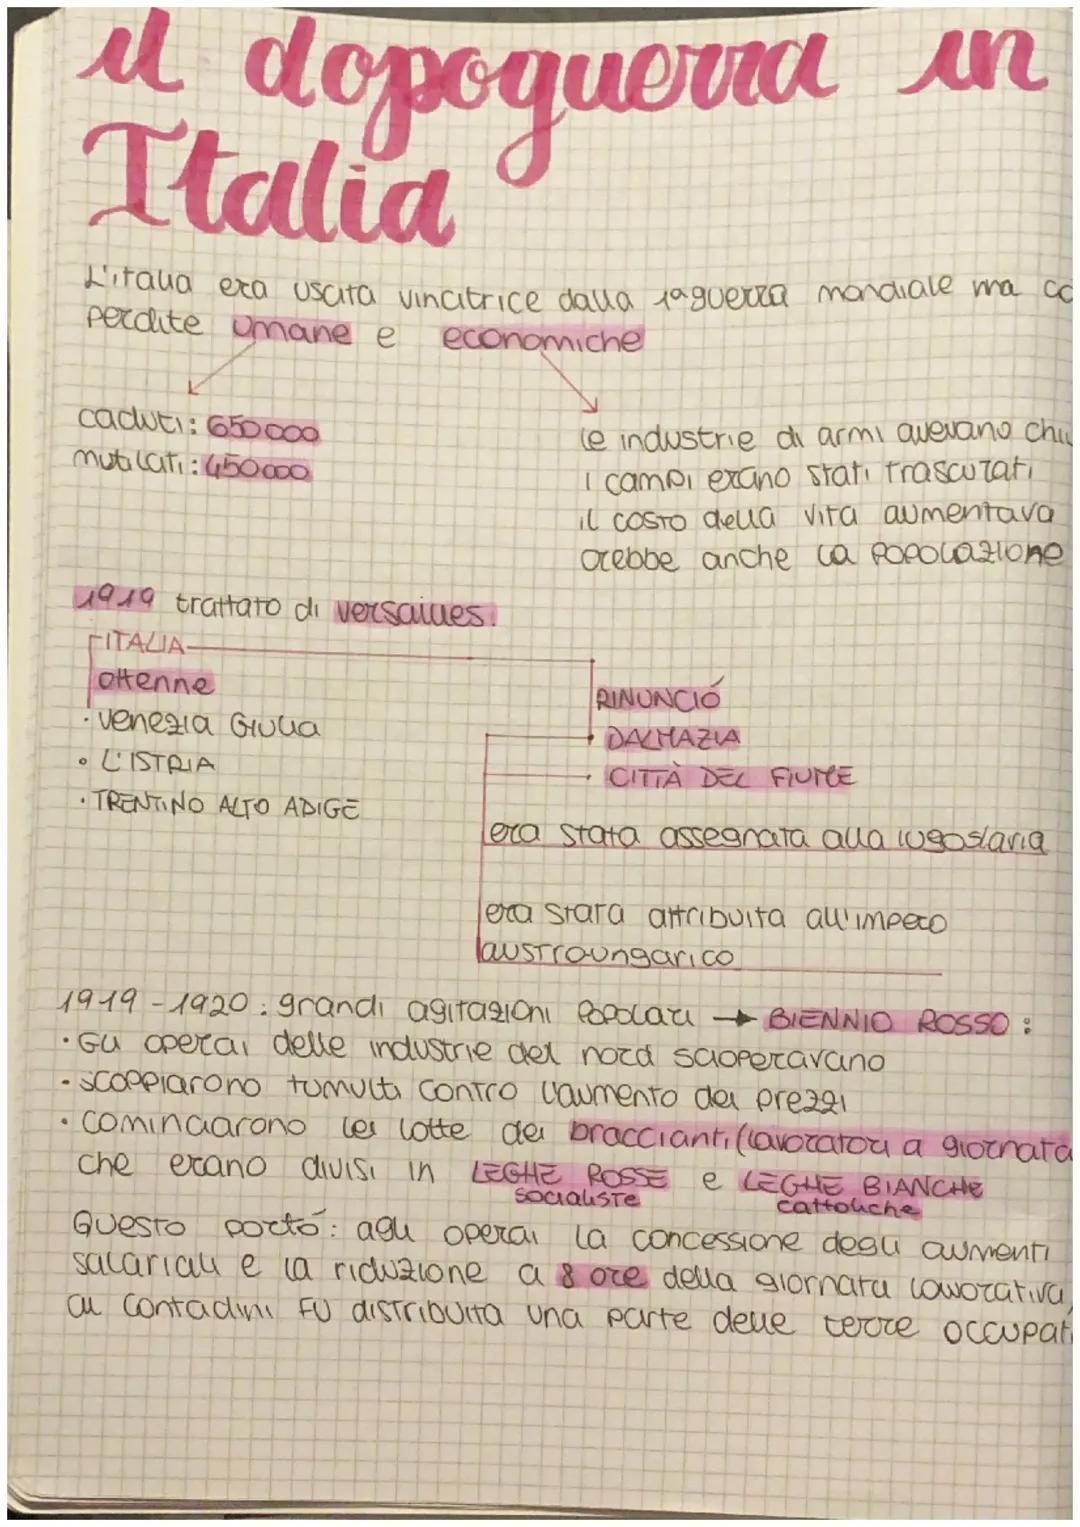 il dopoguerra in
Italia
L'italia era uscita vincitrice dalla 1ª guerra mondiale ma co
perdite umane e economiche
caduti: 650000
mutilati: 450000
le industrie di armi avevano chiu
i campi erano stati trascurati
il costo della vita aumentava
crebbe anche la popolazione
1919 trattato di versailles:
ITALIA
ottenne
· venezia Giulia
· L'ISTRIA
· TRENTINO ALTO ADIGE
RINUNCIÓ
· DALMAZIA
· CITTÀ DEL FIUME
era stata assegnata alla iugoslavia
era stata attribuita all'impero
austroungarico
1919-1920: grandi agitazioni popolari → BIENNIO ROSSO:
· Gli operai delle industrie del nord scioperavano
· scoppiarono tumulti contro l'aumento dei prezzi
· cominciarono les lotte dei braccianti (lavoratori a giornata
che erano divisi in LEGHE ROSSE e LEGHE BIANCHE
socialiste cattoliche
Questo portó: agli operai la concessione degli aumenti
salariali e la riduzione a 8 ore della giornata lavorativa,
ai contadini fu distribuita una parte delle terre occupat